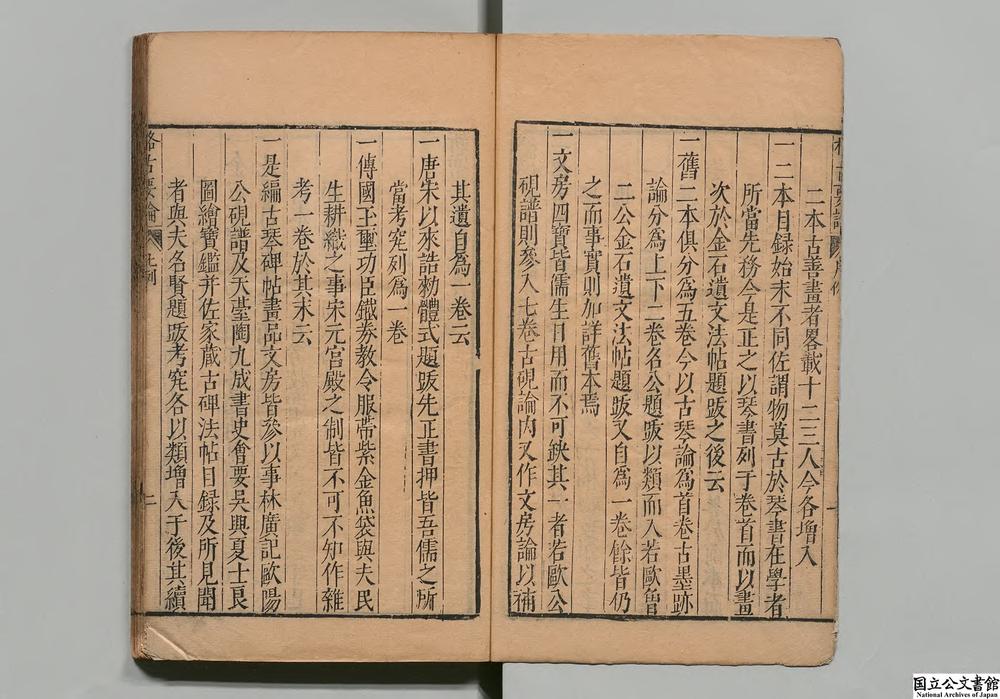 二本古善畫者畧載十二三人今各增入
一二本目録始末不同佐謂物莫古於琴書在學者
所當先務今是正之以琴書列于卷首而以畫
次於金石遺文法帖題䟦之後云
一舊二本俱分為五卷今以古琴論為首卷古墨跡
論分為上下二卷名公題䟦以類而入若歐魯
二公金石遺文法帖題䟦又自為一卷餘皆仍
之而事實則加詳舊本焉
一文房四寶皆儒生日用而不可缺其一者若歐公
硯譜則參入七卷古硯論内又作文房論以補
其遺自為一卷云
一唐宋以來誥勑體式題䟦先正書押皆吾儒之所
當考究列為一卷
一傳國玉璽功臣鐵券教令服帶紫金魚袋與夫民
生耕織之事宋元宫殿之制皆不可不知作雜
考一卷於其末云
一是編古琴碑帖畫品文房皆參以事林廣記歐陽
公硯譜及天臺陶九成書史會要吳興夏士良
圖繪寶鑑并佐家蔵古碑法帖目録及所見聞
者與夫名賢題䟦考究各以類增入于後其續
格古要論
二
国立公文書館
National Archives of Japan